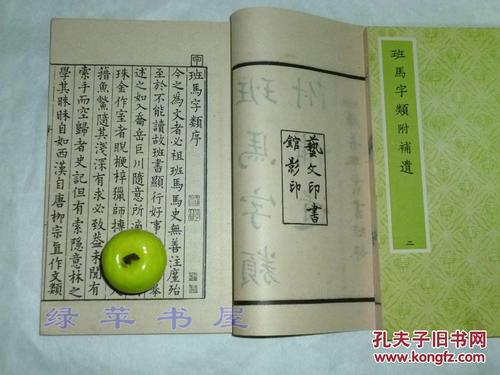 班馬字類附補遺
二
藝文印書
館影印
班馬字類序
今之為文者必祖班馬馬史無善注
至於不能讀故班書顯行好事
述之如入喬岳巨川隨意所
珠金作室者睨楩梓獵師
魚鱉隨其淺深有求必致益未聞有
索手而空歸者史記但有索隱意林之
學其昧昧自如西漢自唐柳宗直作文類
绿苹书屋
孔夫子旧书网
www.kongfz.com